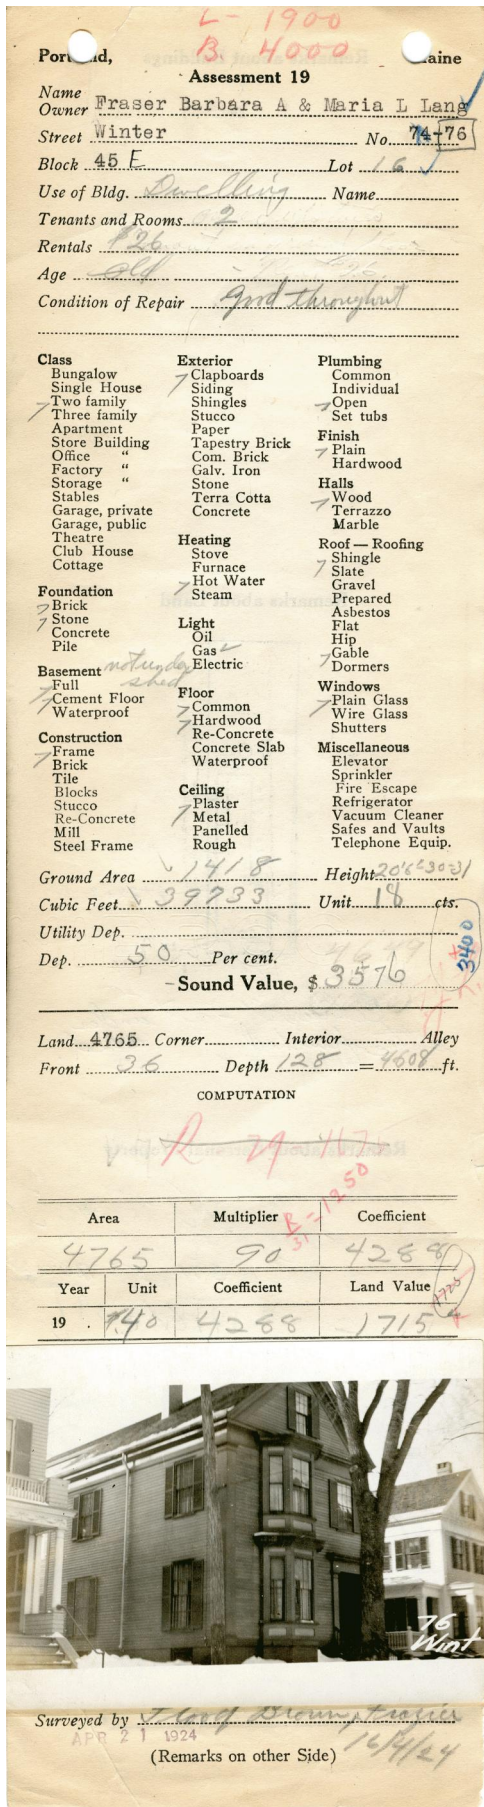 L - 1900
B. 4000
Portland, Maine
Assessment 19
Name
Owner Fraser Barbara A & Maria L Lang
Street Winter No. 74-76
Block 45 E Lot 16
Use of Bldg. Dwelling Name
Tenants and Rooms 2
Rentals $26
Age old
Condition of Repair good throughout
Class
Bungalow
Single House
Two family
Three family
Apartment
Store Building
Office "
Factory "
Storage "
Stables
Garage, private
Garage, public
Theatre
Club House
Cottage
Foundation
Brick
Stone
Concrete
Pile
Basement not under shed
Full
Cement Floor
Waterproof
Construction
Frame
Brick
Tile
Blocks
Stucco
Re-Concrete
Mill
Steel Frame
Exterior
Clapboards
Siding
Shingles
Stucco
Paper
Tapestry Brick
Com. Brick
Galv. Iron
Stone
Terra Cotta
Concrete
Heating
Stove
Furnace
Hot Water
Steam
Light
Oil
Gas
Electric
Floor
Common
Hardwood
Re-Concrete
Concrete Slab
Waterproof
Ceiling
Plaster
Metal
Panelled
Rough
Plumbing
Common
Individual
Open
Set tubs
Finish
Plain
Hardwood
Halls
Wood
Terrazzo
Marble
Roof — Roofing
Shingle
Slate
Gravel
Prepared
Asbestos
Flat
Hip
Gable
Dormers
Windows
Plain Glass
Wire Glass
Shutters
Miscellaneous
Elevator
Sprinkler
Fire Escape
Refrigerator
Vacuum Cleaner
Safes and Vaults
Telephone Equip.
Ground Area 1418 Height
Cubic Feet 39733 Unit 18 cts.
Utility Dep.
Dep. 50 Per cent.
3400
Sound Value, $ 3576
Land 4765 Corner Interior Alley
Front 36 Depth 128 = 4608 ft.
COMPUTATION
R 29 4175
R/31 = 1250
Area Multiplier Coefficient
4765 90 4288
Year Unit Coefficient Land Value
1725
19 . .40 4288 1715
76
Wint
Surveyed by Flood Brown & Frazier
APR 21 1924
16/4/24
(Remarks on other Side)